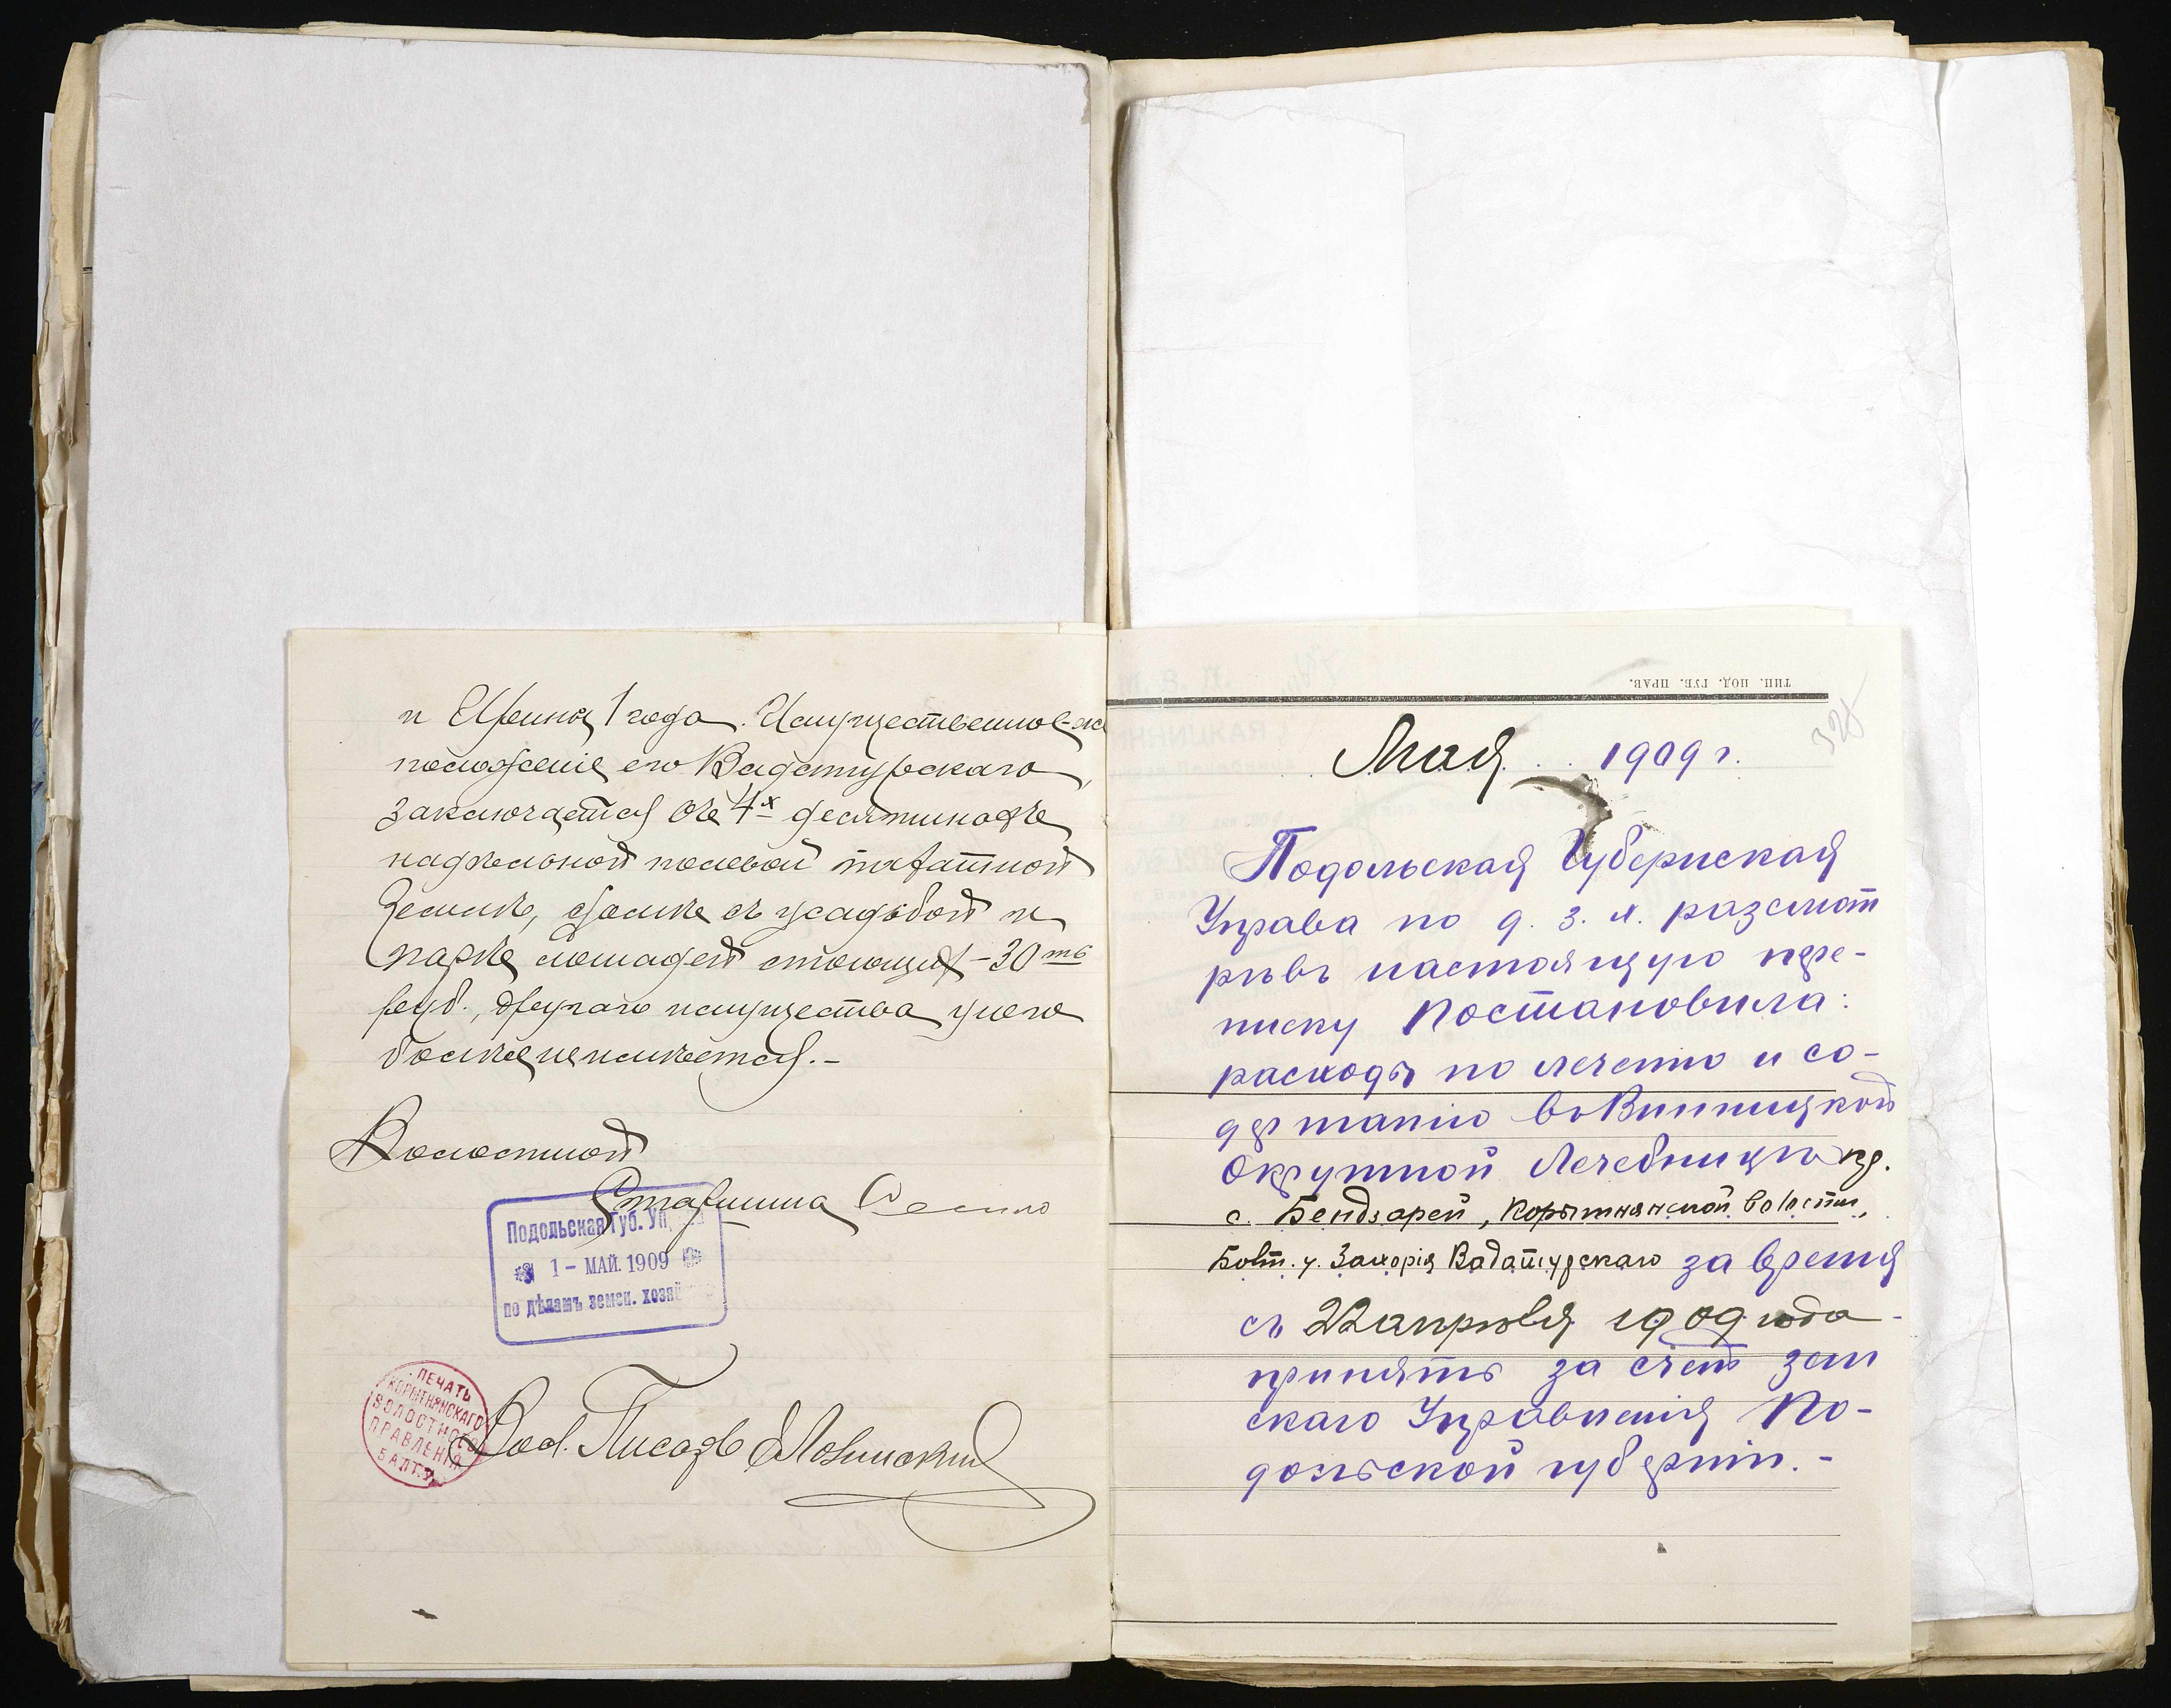 и Ирина 1 года. Имущественное же
положеніе его Вадатурскаго,
заключается въ 4х десятинахъ
надѣльной полевой пахатной
земли, домѣ съ усадьбой и
парѣ лошадей стоющихъ - 30 ть
руб., другаго имущества у него
болѣе не имѣется. -
Волостной
Старшина
Подольская Губ. Уп
1 - МАЙ. 1909
по дѣламъ земск. хозяй
ПЕЧАТЬ
КОРЫТНЯНСКАГО
ВОЛОСТНОГО
ПРАВЛЕНІЯ
БАЛТ. У.
Вол. Писарь
ТИП. ПОД. ГУБ. ПРАВ.
328
Мая 1909 г.
Подольская Губернская
Управа по д. з. х. разсмот
рѣвъ настоящую пере-
писку Постановила:
расходы по леченію и со-
держанію въ Винницкой
Окружной Лечебницѣ кр.
с. Бендзарей, Корытнянской волости,
Балт. у. Захорія Вадатурскаго за время
съ 22 апрѣля 1909 года
принять за счетъ зем
скаго Управленія По-
дольской губерніи. -